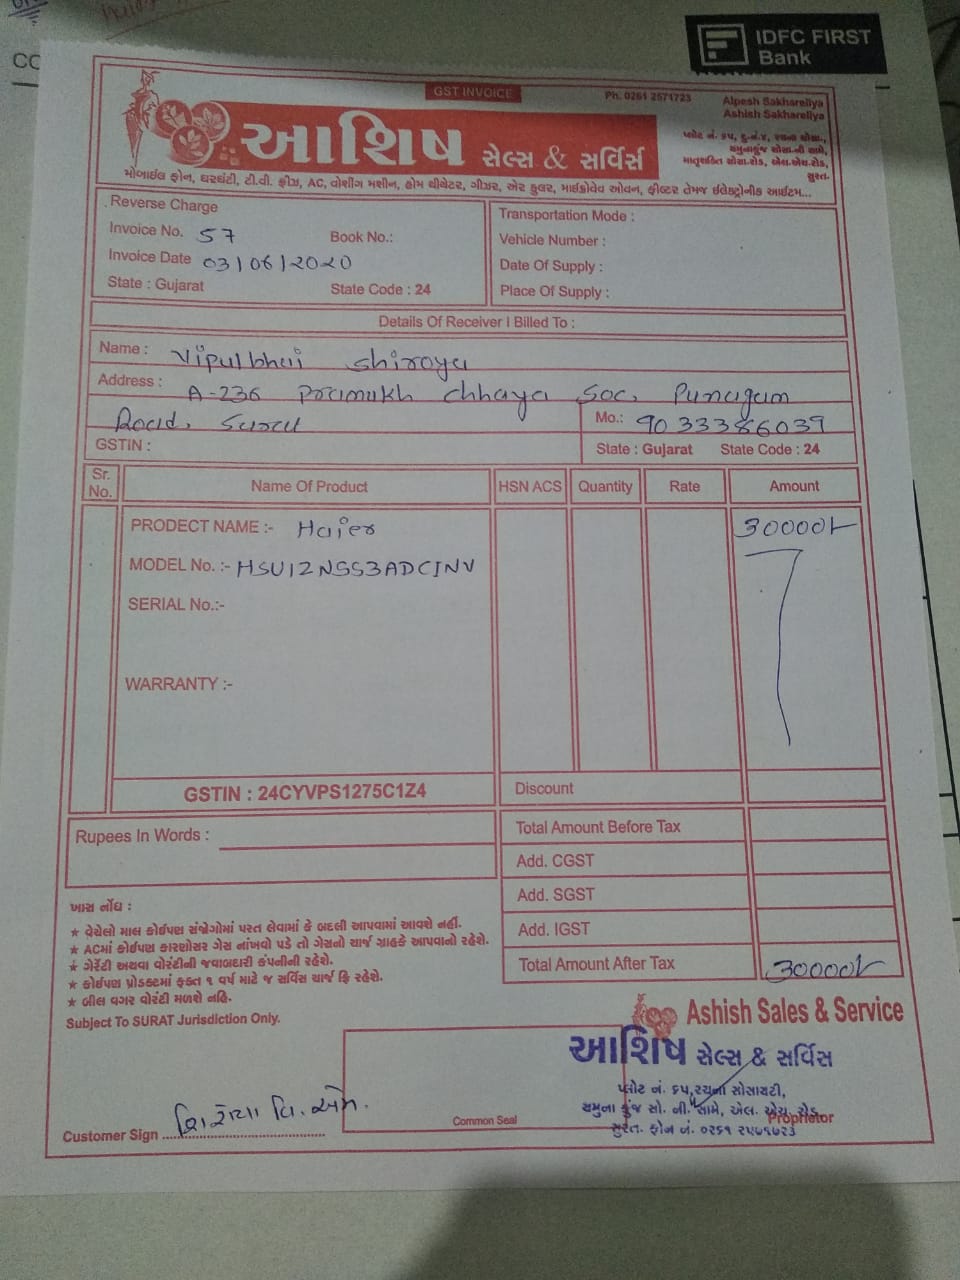 IDFC FIRST
Bank
GST INVOICE
Ph. 0261 2571723
Alpesh Sakhareliya
Ashish Sakhareliya
આશિષ સેલ્સ & સર્વિસ
પ્લોટ નં. ૬૫, દુ.નં.૪, રચના સોસા.,
યમુનાકુંજ સોસા.ની સામે,
માતૃશક્તિ સોસા.રોડ, એલ.એચ.રોડ,
સુરત.
મોબાઈલ ફોન, ઘરઘંટી, ટી.વી. ફ્રીઝ, AC, વોશીંગ મશીન, હોમ થીયેટર, ગીઝર, એર કુલર, માઈક્રોવેવ ઓવન, ફીલ્ટર તેમજ ઈલેક્ટ્રોનીક આઈટમ...
Reverse Charge
Invoice No. 57 Book No.:
Invoice Date 03/06/2020
State : Gujarat State Code : 24
Transportation Mode :
Vehicle Number :
Date Of Supply :
Place Of Supply :
Details Of Receiver I Billed To :
Name : Vipulbhai Shiroya
Address : A-236 Pramukh Chhaya Soc, Punagam
Road, Surat Mo.: 9033386039
GSTIN : State : Gujarat State Code : 24
Sr. No. Name Of Product HSN ACS Quantity Rate Amount
PRODECT NAME :- Haier 30000/-
MODEL No. :- HSU12NSS3ADCINV
SERIAL No.:-
WARRANTY :-
GSTIN : 24CYVPS1275C1Z4 Discount
Rupees In Words : Total Amount Before Tax
Add. CGST
Add. SGST
Add. IGST
Total Amount After Tax 30000/-
ખાસ નોંધ :
★ વેચેલો માલ કોઈપણ સંજોગોમાં પરત લેવામાં કે બદલી આપવામાં આવશે નહીં.
★ ACમાં કોઈપણ કારણોસર ગેસ નાંખવો પડે તો ગેસનો ચાર્જ ગ્રાહકે આપવાનો રહેશે.
★ ગેરેંટી અથવા વોરંટીની જવાબદારી કંપનીની રહેશે.
★ કોઈપણ પ્રોડક્ટમાં ફક્ત ૧ વર્ષ માટે જ સર્વિસ ચાર્જ ફ્રિ રહેશે.
★ બીલ વગર વોરંટી મળશે નહિ.
Subject To SURAT Jurisdiction Only.
Ashish Sales & Service
આશિષ સેલ્સ & સર્વિસ
પ્લોટ નં. ૬૫, રચના સોસાયટી,
યમુના કુંજ સો. ની. સામે, એલ. એચ. રોડ,
સુરત. ફોન નં. ૦૨૬૧ ૨૫૭૧૭૨૩
Customer Sign Common Seal Proprietor